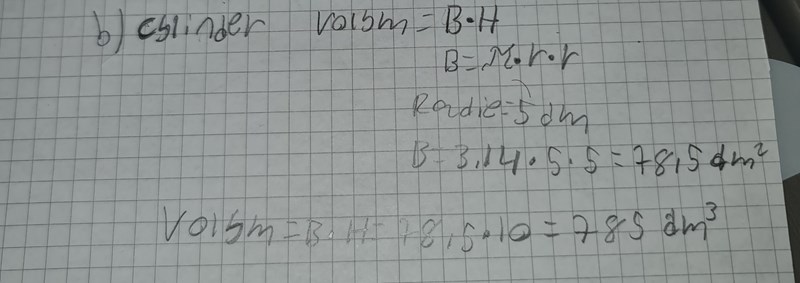 b) cylinder volym = B·H
B = π·r·r
Radie = 5 dm
B = 3,14·5·5 = 78,5 dm²
Volym = B·H = 78,5·10 = 785 dm³